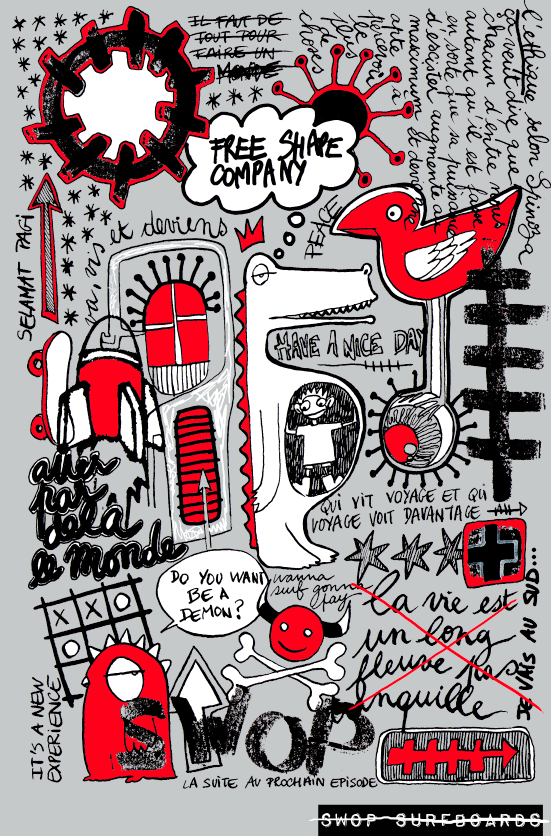 IL FAUT DE
TOUT POUR
FAIRE UN
MONDE
l'ethique, selon Spinoza
serait dire que
chacun d'entre nous
autant qu'il est
en sorte que sa puissance
d'exister augmente au
maximum et devient
apte à
percevoir
le plus
de
choses
FREE SHAPE
COMPANY
PEACE
SELAMAT PAGI
va, vis et deviens
HAVE A NICE DAY
aller
par
delà
le monde
QUI VIT VOYAGE ET QUI
VOYAGE VOIT DAVANTAGE
AH
DO YOU WANT
BE A
DEMON?
wanna
surf gonna
play
X X O
la vie est
un long
fleuve pas
anquille
JE VAIS AU SUD...
IT'S A NEW
EXPERIENCE
SWOP
LA SUITE AU PROCHAIN EPISODE
SWOP SURFBOARDS